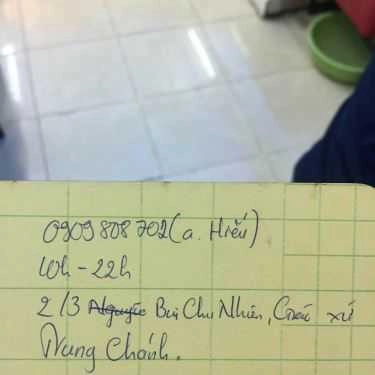 0909 808 702 (a. Hiếu)
10h - 22h
2/3 Bùi Chu Nhiên, Giáo xứ
Trung Chánh.